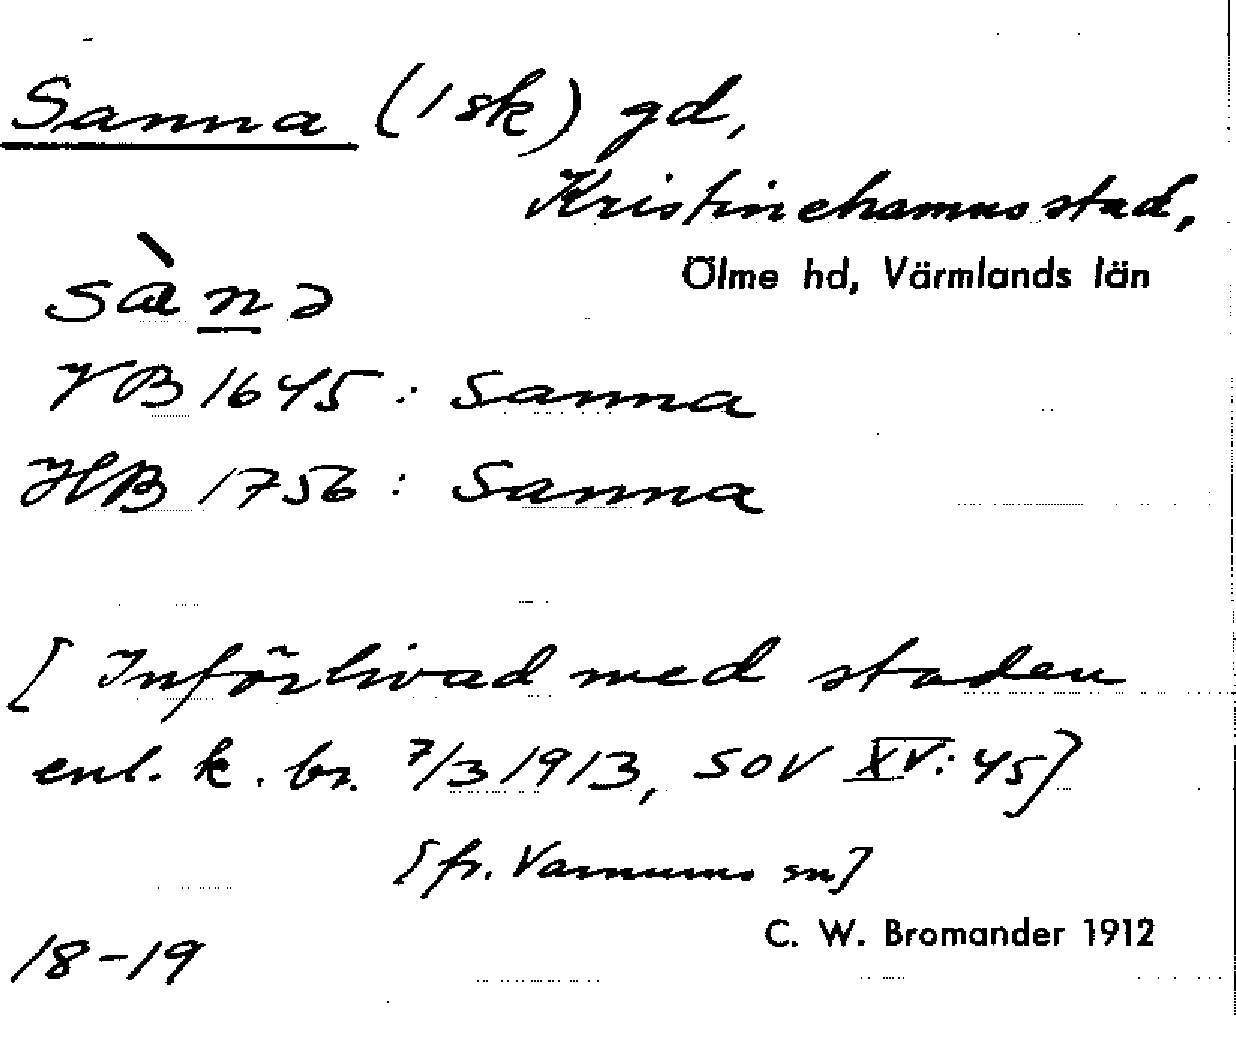 Sanna (1 sk) gd,
Kristinehamns stad,
Ölme hd, Värmlands län
sànə
VB 1645 : Sanna
HB 1756 : Sanna
[Införlivad med staden
enl. k. br. 7/3 1913, SOV XV: 45]
[fr. Varnums sn]
C. W. Bromander 1912
18-19